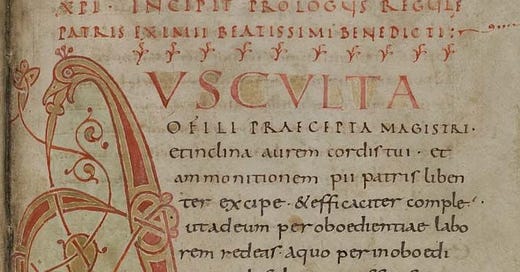 XPI. INCIPIT PROLOGVS REGVLĘ
PATRIS EXIMII BEATISSIMI BENEDICTI:
AVSCVLTA
O FILI PRAECEPTA MAGISTRI·
et inclina aurem cordis tui · et
ammonitionem pii patris liben
ter excipe · & efficaciter comple
ut ad eum per oboedientiae labo
rem redeas · a quo per inoboedi